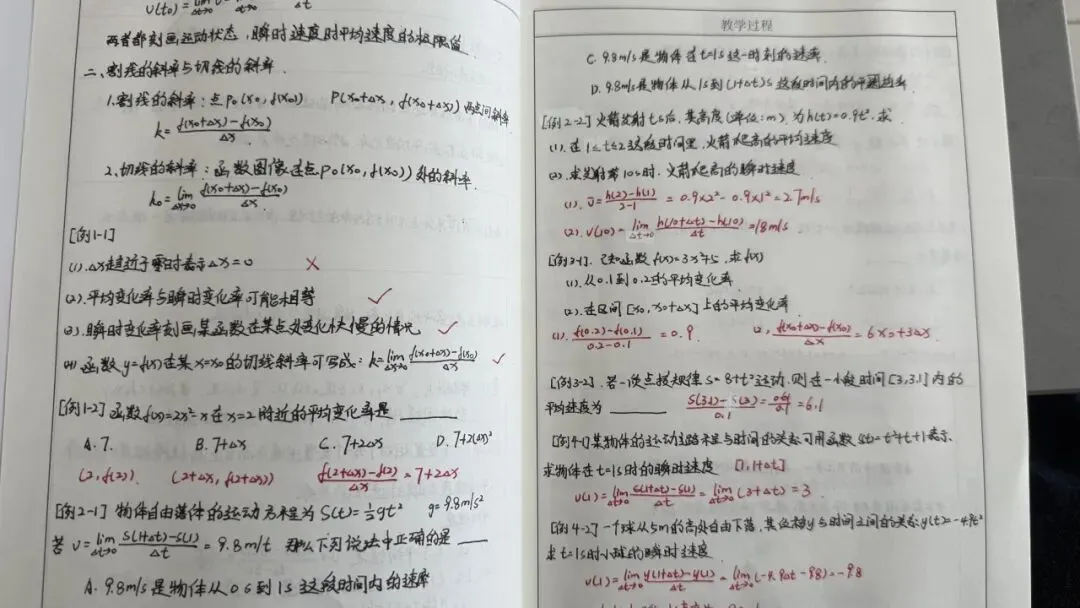 v(t₀)=lim Δt→0 Δt
两者都刻画运动状态,瞬时速度时平均速度的极限值
二、割线的斜率与切线的斜率.
1.割线的斜率:点P₀(x₀,f(x₀)) P(x₀+Δx,f(x₀+Δx))两点间斜率
k=(f(x₀+Δx)-f(x₀))/Δx
2.切线的斜率:函数图像在点P₀(x₀,f(x₀))处的斜率.
k₀=lim Δx→0 (f(x₀+Δx)-f(x₀))/Δx
[例1-1]
(1).Δx趋近于零时表示Δx=0 ×
(2).平均变化率与瞬时变化率可能相等 ✓
(3).瞬时变化率刻画某函数在某点处变化快慢的情况 ✓
(4).函数y=f(x)在某x=x₀的切线斜率可写成:k=lim Δx→0 (f(x₀+Δx)-f(x₀))/Δx ✓
[例1-2]函数f(x)=2x²-x在x=2附近的平均变化率是 ____
A.7. B.7+Δx C.7+2Δx D.7+2(Δx)²
(2,f(2)). (2+Δx,f(2+Δx)) (f(2+Δx)-f(2))/Δx=7+2Δx
[例2-1]物体自由落体的运动方程为S(t)=½gt² g=9.8m/s²
若v=lim Δt→0 (S(1+Δt)-S(1))/Δt=9.8m/t 那么下列说法中正确的是 ____
A.9.8m/s是物体从0s到1s这段时间内的速率
教学过程
C.9.8m/s是物体在t=1s这一时刻的速率.
D.9.8m/s是物体从1s到(1+Δt)s这段时间内的平均速率
[例2-2]火箭发射ts后,其高度(单位:m)为h(t)=0.9t².求
(1).在1≤t≤2这段时间里,火箭爬高的平均速度
(2).求发射第10s时,火箭爬高的瞬时速度
(1).v̄=(h(2)-h(1))/(2-1)=0.9×2²-0.9×1²=2.7m/s
(2).v(10)=lim Δt→0 (h(10+Δt)-h(10))/Δt=18m/s
[例3-1].已知函数f(x)=3x²+5,求f(x)
(1).从0.1到0.2的平均变化率.
(2).在区间[x₀,x₀+Δx]上的平均变化率
(1).(f(0.2)-f(0.1))/(0.2-0.1)=0.9 (2).(f(x₀+Δx)-f(x₀))/Δx=6x₀+3Δx
[例3-2].若一质点按规律S=8+t²运动,则在一小段时间[3,3.1]内的
平均速度为 ____ (S(3.1)-S(3))/0.1=0.61/0.1=6.1
[例4-1]某物体的运动路程与时间的关系可用函数S(t)=t²+t+1表示.
求物体在t=1s时的瞬时速度 [1,1+Δt]
v(1)=lim Δt→0 (S(1+Δt)-S(1))/Δt=lim Δt→0 (3+Δt)=3.
[例4-2]一个球从5m的高处自由下落,其位移y与时间之间的关系:y(t)=-4.9t²
求t=1s时小球的瞬时速度
v(1)=lim Δt→0 (y(1+Δt)-y(1))/Δt=lim Δt→0 (-4.9Δt-9.8)=-9.8